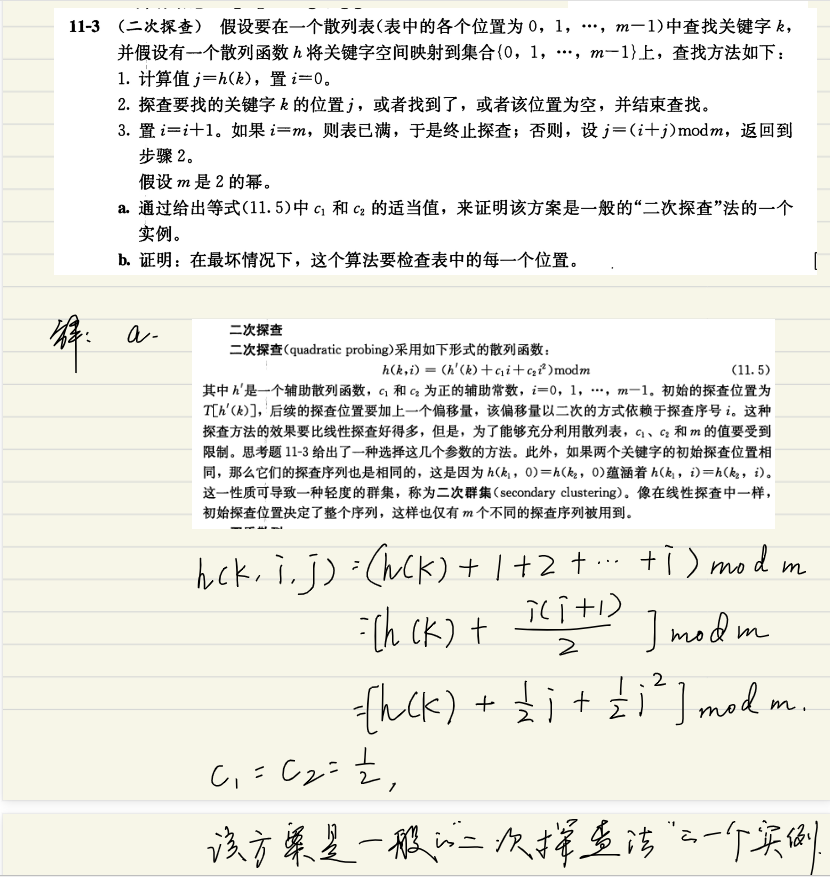 11-3 (二次探查) 假设要在一个散列表(表中的各个位置为 0, 1, …, m-1)中查找关键字 k,
并假设有一个散列函数 h 将关键字空间映射到集合{0, 1, …, m-1}上, 查找方法如下:
1. 计算值 j=h(k), 置 i=0。
2. 探查要找的关键字 k 的位置 j, 或者找到了, 或者该位置为空, 并结束查找。
3. 置 i=i+1。如果 i=m, 则表已满, 于是终止探查; 否则, 设 j=(i+j)mod m, 返回到
步骤 2。
假设 m 是 2 的幂。
a. 通过给出等式(11.5)中 c₁ 和 c₂ 的适当值, 来证明该方案是一般的“二次探查”法的一个
实例。
b. 证明: 在最坏情况下, 这个算法要检查表中的每一个位置。
解: a.
二次探查
二次探查(quadratic probing)采用如下形式的散列函数:
h(k,i) = (h'(k) + c₁i + c₂i²) mod m (11.5)
其中 h'是一个辅助散列函数, c₁ 和 c₂ 为正的辅助常数, i=0, 1, …, m-1。初始的探查位置为
T[h'(k)], 后续的探查位置要加上一个偏移量, 该偏移量以二次的方式依赖于探查序号 i。这种
探查方法的效果要比线性探查好得多, 但是, 为了能够充分利用散列表, c₁、c₂ 和 m 的值要受到
限制。思考题 11-3 给出了一种选择这几个参数的方法。此外, 如果两个关键字的初始探查位置相
同, 那么它们的探查序列也是相同的, 这是因为 h(k₁, 0)=h(k₂, 0)蕴涵着 h(k₁, i)=h(k₂, i)。
这一性质可导致一种轻度的群集, 称为二次群集(secondary clustering)。像在线性探查中一样,
初始探查位置决定了整个序列, 这样也仅有 m 个不同的探查序列被用到。
h(k, i, j) = (h(k) + 1 + 2 + … + i) mod m
= [h(k) + i(i+1)/2] mod m
= [h(k) + 1/2 i + 1/2 i²] mod m.
c₁ = c₂ = 1/2,
该方案是一般的“二次探查法”的一个实例.